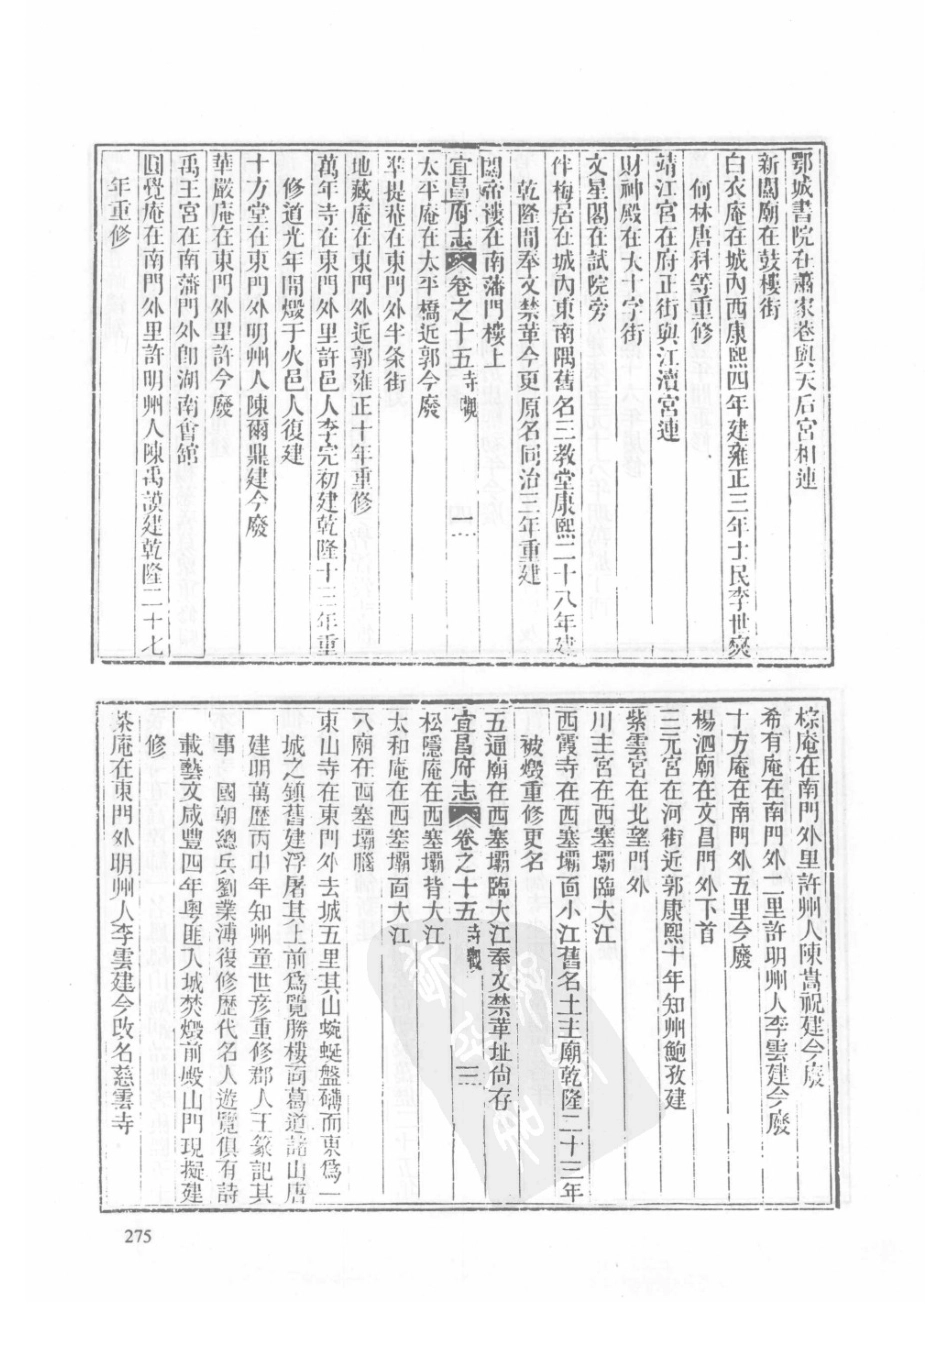 鄂城書院在蕭家巷與天后宮相連
新關廟在鼓樓街
白衣庵在城內西康熙四年建雍正三年士民李世奬
何林唐科等重修
靖江宮在府正街與江瀆宮連
財神殿在大十字街
文星閣在試院旁
伴梅居在城內東南隅舊名三教堂康熙二十八年建
乾隆間奉文禁革今更原名同治三年重建
關帝樓在南藩門樓上
宜昌府志 卷之十五 寺觀 二
太平庵在太平橋近郭今廢
準提菴在東門外半条街
地藏庵在東門外近郭雍正十年重修
萬年寺在東門外里許邑人李完初建乾隆十三年重
修道光年間燬于火邑人復建
十方堂在東門外明州人陳爾鼎建今廢
華嚴庵在東門外里許今廢
禹王宮在南藩門外卽湖南會館
圓覺庵在南門外里許明州人陳禹謨建乾隆二十七
年重修
棕庵在南門外里許州人陳嵩祝建今廢
希有庵在南門外二里許明州人李雲建今廢
十方庵在南門外五里今廢
楊泗廟在文昌門外下首
三元宮在河街近郭康熙十年知州鮑孜建
紫雲宮在北望門外
川主宮在西塞壩臨大江
西霞寺在西塞壩面小江舊名土主廟乾隆二十三年
被燬重修更名
五通廟在西塞壩臨大江奉文禁革址尙存
宜昌府志 卷之十五 寺觀 三
松隱庵在西塞壩背大江
太和庵在西塞壩面大江
八廟在西塞壩腦
東山寺在東門外去城五里其山蜿蜒盤礴而東爲一
城之鎮舊建浮屠其上前爲覽勝樓面葛道諸山唐
建明萬歷丙申年知州童世彥重修郡人王篆記其
事 國朝總兵劉業溥復修歷代名人遊覽俱有詩
載藝文咸豐四年粵匪入城焚燬前殿山門現擬建
修
茶庵在東門外明州人李雲建今改名慈雲寺
275